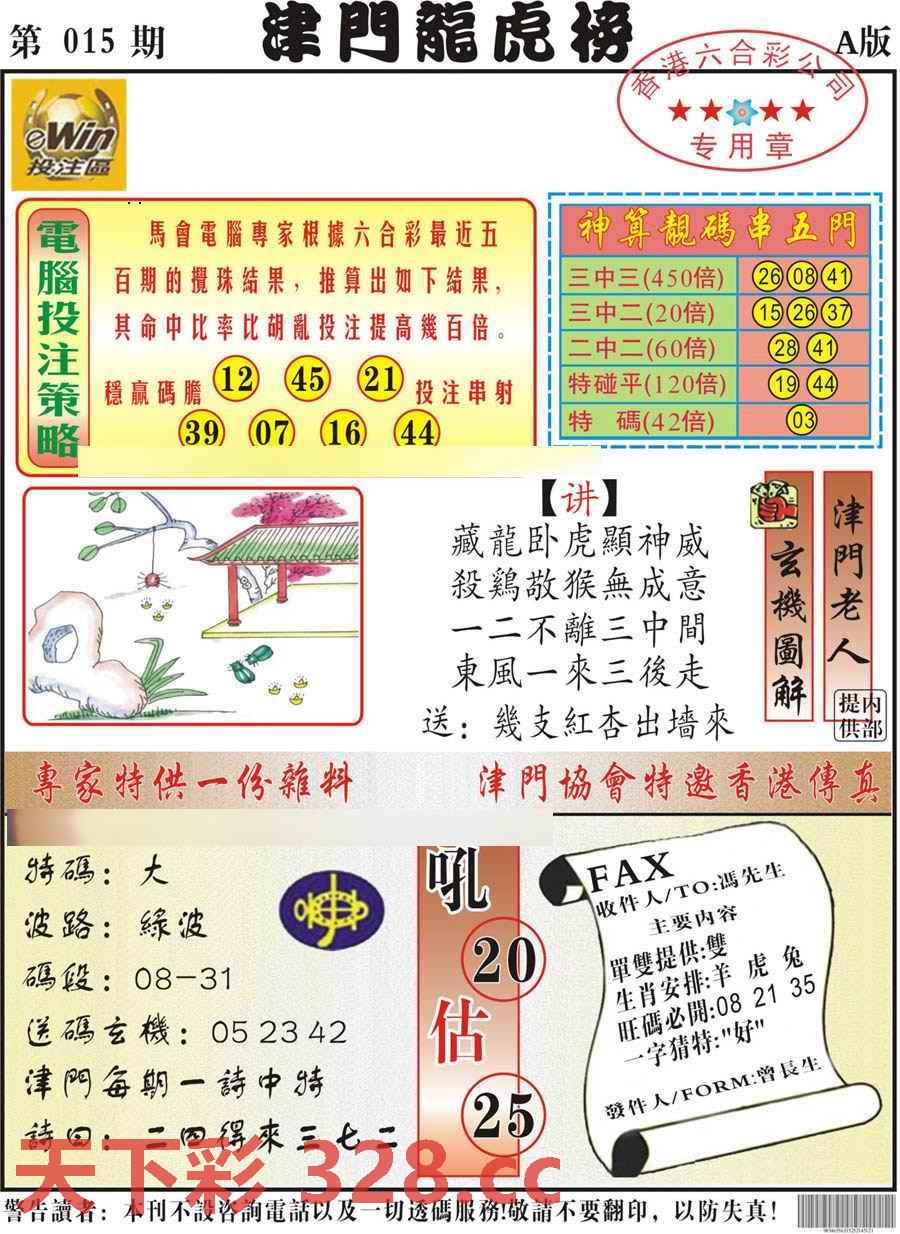 第 015 期
津門龍虎榜
A版
香港六合彩公司
专用章
eWin
投注區
電腦投注策略
馬會電腦專家根據六合彩最近五
百期的攪珠結果，推算出如下結果，
其命中比率比胡亂投注提高幾百倍。
穩贏碼膽 12 45 21 投注串射
39 07 16 44
神算靚碼串五門
三中三(450倍) 26 08 41
三中二(20倍) 15 26 37
二中二(60倍) 28 41
特碰平(120倍) 19 44
特 碼(42倍) 03
【讲】
藏龍卧虎顯神威
殺鷄敬猴無成意
一二不離三中間
東風一來三後走
送：幾支紅杏出墻來
玄機圖解
津門老人
内部提供
專家特供一份雜料
津門協會特邀香港傳真
特碼：大
波路：綠波
碼段：08-31
送碼玄機：05 23 42
津門每期一詩中特
詩曰：二四得來三七二
吼
20
估
25
FAX
收件人/TO:馮先生
主要内容
單雙提供:雙
生肖安排:羊 虎 兔
旺碼必開:08 21 35
一字猜特:"好"
發件人/FORM:曾長生
天下彩 328.cc
警告讀者：本刊不設咨詢電話以及一切透碼服務!敬請不要翻印，以防失真！